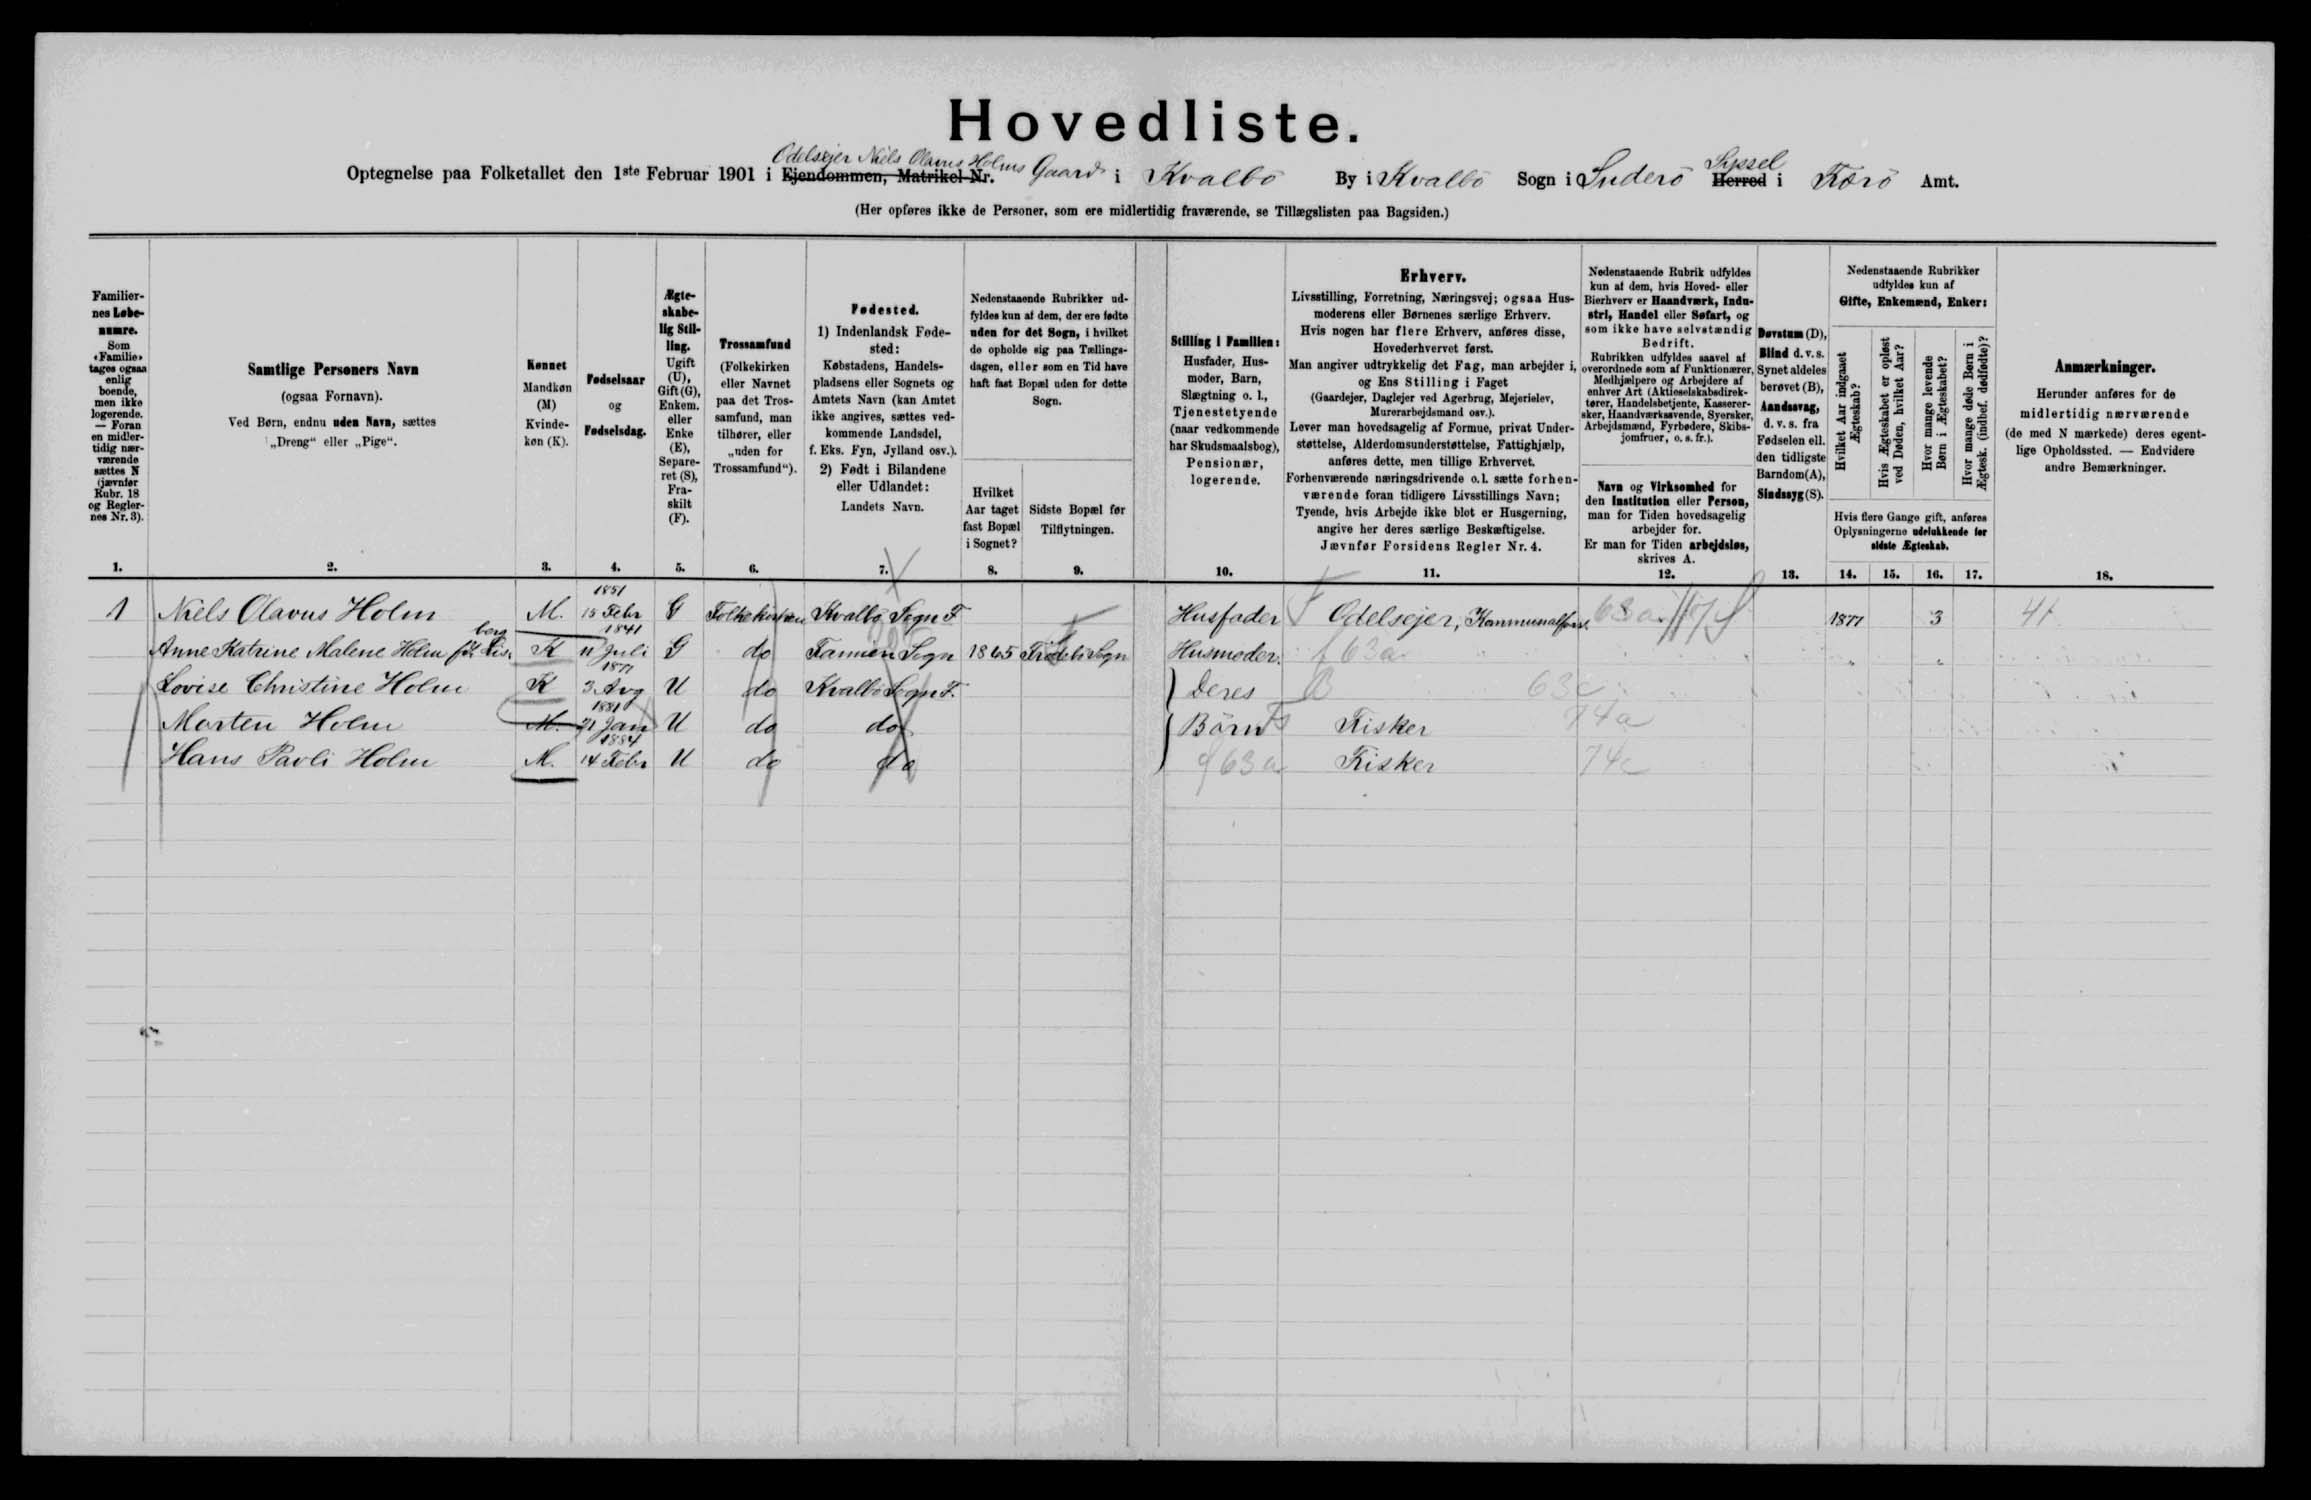 Hovedliste.
Odelsejer Niels Olavus Holms Gaard
Optegnelse paa Folketallet den 1ste Februar 1901 i Ejendommen, Matrikel-Nr. i Kvalbö By i Kvalbö Sogn i Suderö Syssel Herred i Færö Amt.
(Her opføres ikke de Personer, som ere midlertidig fraværende, se Tillægslisten paa Bagsiden.)
Familier-
nes Løbe-
numre.
Som
«Familie»
tages ogsaa
enlig
boende,
men ikke
logerende.
— Foran
en midler-
tidig nær-
værende
sættes N
(jævnfør
Rubr. 18
og Regler-
nes Nr. 3).
1.
Samtlige Personers Navn
(ogsaa Fornavn).
Ved Børn, endnu uden Navn, sættes
„Dreng“ eller „Pige“.
2.
Kønnet
Mandkøn
(M)
Kvinde-
køn (K).
3.
Fødselsaar
og
Fødselsdag.
4.
Ægte-
skabe-
lig Stil-
ling.
Ugift
(U),
Gift (G),
Enkem.
eller
Enke
(E),
Separe-
ret (S),
Fra-
skilt
(F).
5.
Trossamfund
(Folkekirken
eller Navnet
paa det Tros-
samfund, man
tilhører, eller
„uden for
Trossamfund“).
6.
Fødested.
1) Indenlandsk Føde-
sted:
Købstadens, Handels-
pladsens eller Sognets og
Amtets Navn (kan Amtet
ikke angives, sættes ved-
kommende Landsdel,
f. Eks. Fyn, Jylland osv.).
2) Født i Bilandene
eller Udlandet:
Landets Navn.
7.
Nedenstaaende Rubrikker ud-
fyldes kun af dem, der ere fødte
uden for det Sogn, i hvilket
de opholde sig paa Tællings-
dagen, eller som en Tid have
haft fast Bopæl uden for dette
Sogn.
Hvilket
Aar taget
fast Bopæl
i Sognet?
8.
Sidste Bopæl før
Tilflytningen.
9.
Stilling i Familien:
Husfader, Hus-
moder, Barn,
Slægtning o. l.,
Tjenestetyende
(naar vedkommende
har Skudsmaalsbog),
Pensionær,
logerende.
10.
Erhverv.
Livsstilling, Forretning, Næringsvej; ogsaa Hus-
moderens eller Børnenes særlige Erhverv.
Hvis nogen har flere Erhverv, anføres disse,
Hovederhvervet først.
Man angiver udtrykkelig det Fag, man arbejder i,
og Ens Stilling i Faget
(Gaardejer, Daglejer ved Agerbrug, Mejerielev,
Murerarbejdsmand osv.).
Lever man hovedsagelig af Formue, privat Under-
støttelse, Alderdomsunderstøttelse, Fattighjælp,
anføres dette, men tillige Erhvervet.
Forhenværende næringsdrivende o.l. sætte forhen-
værende foran tidligere Livsstillings Navn;
Tyende, hvis Arbejde ikke blot er Husgerning,
angive her deres særlige Beskæftigelse.
Jævnfør Forsidens Regler Nr. 4.
11.
Nedenstaaende Rubrik udfyldes
kun af dem, hvis Hoved- eller
Bierhverv er Haandværk, Indu-
stri, Handel eller Søfart, og
som ikke have selvstændig
Bedrift.
Rubrikken udfyldes saavel af
overordnede som af Funktionærer,
Medhjælpere og Arbejdere af
enhver Art (Aktieselskabsdirek-
tører, Handelsbetjente, Kasserer-
sker, Haandværkssvende, Syersker,
Arbejdsmænd, Fyrbødere, Skibs-
jomfruer, o. s. fr.).
Navn og Virksomhed for
den Institution eller Person,
man for Tiden hovedsagelig
arbejder for.
Er man for Tiden arbejdsløs,
skrives A.
12.
Døvstum (D),
Blind d. v. s.
Synet aldeles
berøvet (B),
Aandssvag,
d. v. s. fra
Fødselen ell.
den tidligste
Barndom (A),
Sindssyg (S).
13.
Nedenstaaende Rubrikker
udfyldes kun af
Gifte, Enkemænd, Enker:
Hvilket Aar indgaaet
Ægteskab?
Hvis Ægteskabet er opløst
ved Døden, hvilket Aar?
Hvor mange levende
Børn i Ægteskabet?
Hvor mange døde Børn i
Ægtesk. (indbef. dødfødte)?
Hvis flere Gange gift, anføres
Oplysningerne udelukkende for
sidste Ægteskab.
14. 15. 16. 17.
Anmærkninger.
Herunder anføres for de
midlertidig nærværende
(de med N mærkede) deres egent-
lige Opholdssted. — Endvidere
andre Bemærkninger.
18.
1 Niels Olavus Holm M. 1851 15 Febr G Folkekirken Kvalbö Sogn F Husfader F Odelsejer, Kommunalforst. 63a 1877 3 41
Anne Katrine Malene Holm föd Lisberg K 1841 11 Juli G do Famien Sogn 1865 Frodebö Sogn Husmoder. f 63a
Lovise Christine Holm K 1877 3 Avg U do Kvalbö Sogn F. Deres B 63c
Morten Holm M. 1881 21 Jan U do do Börn Fs Fisker 74a
Hans Pavli Holm M. 1884 14 Febr U do do 63a Fisker 74c